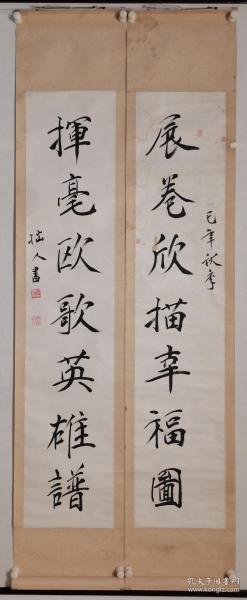 展卷欣描幸福圖
己年秋季
揮毫欧歌英雄譜
拙人書
孔夫子旧书网